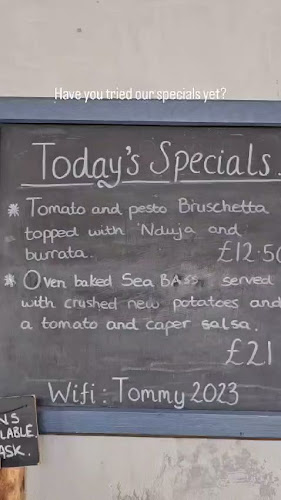 Have you tried our specials yet?
Today's Specials.
* Tomato and pesto Bruschetta
topped with 'Nduja and
burrata. £12.50
* Oven baked Sea BASS served
with crushed new potatoes and
a tomato and caper salsa.
£21
Wifi: Tommy 2023
NS
LABLE.
ASK.